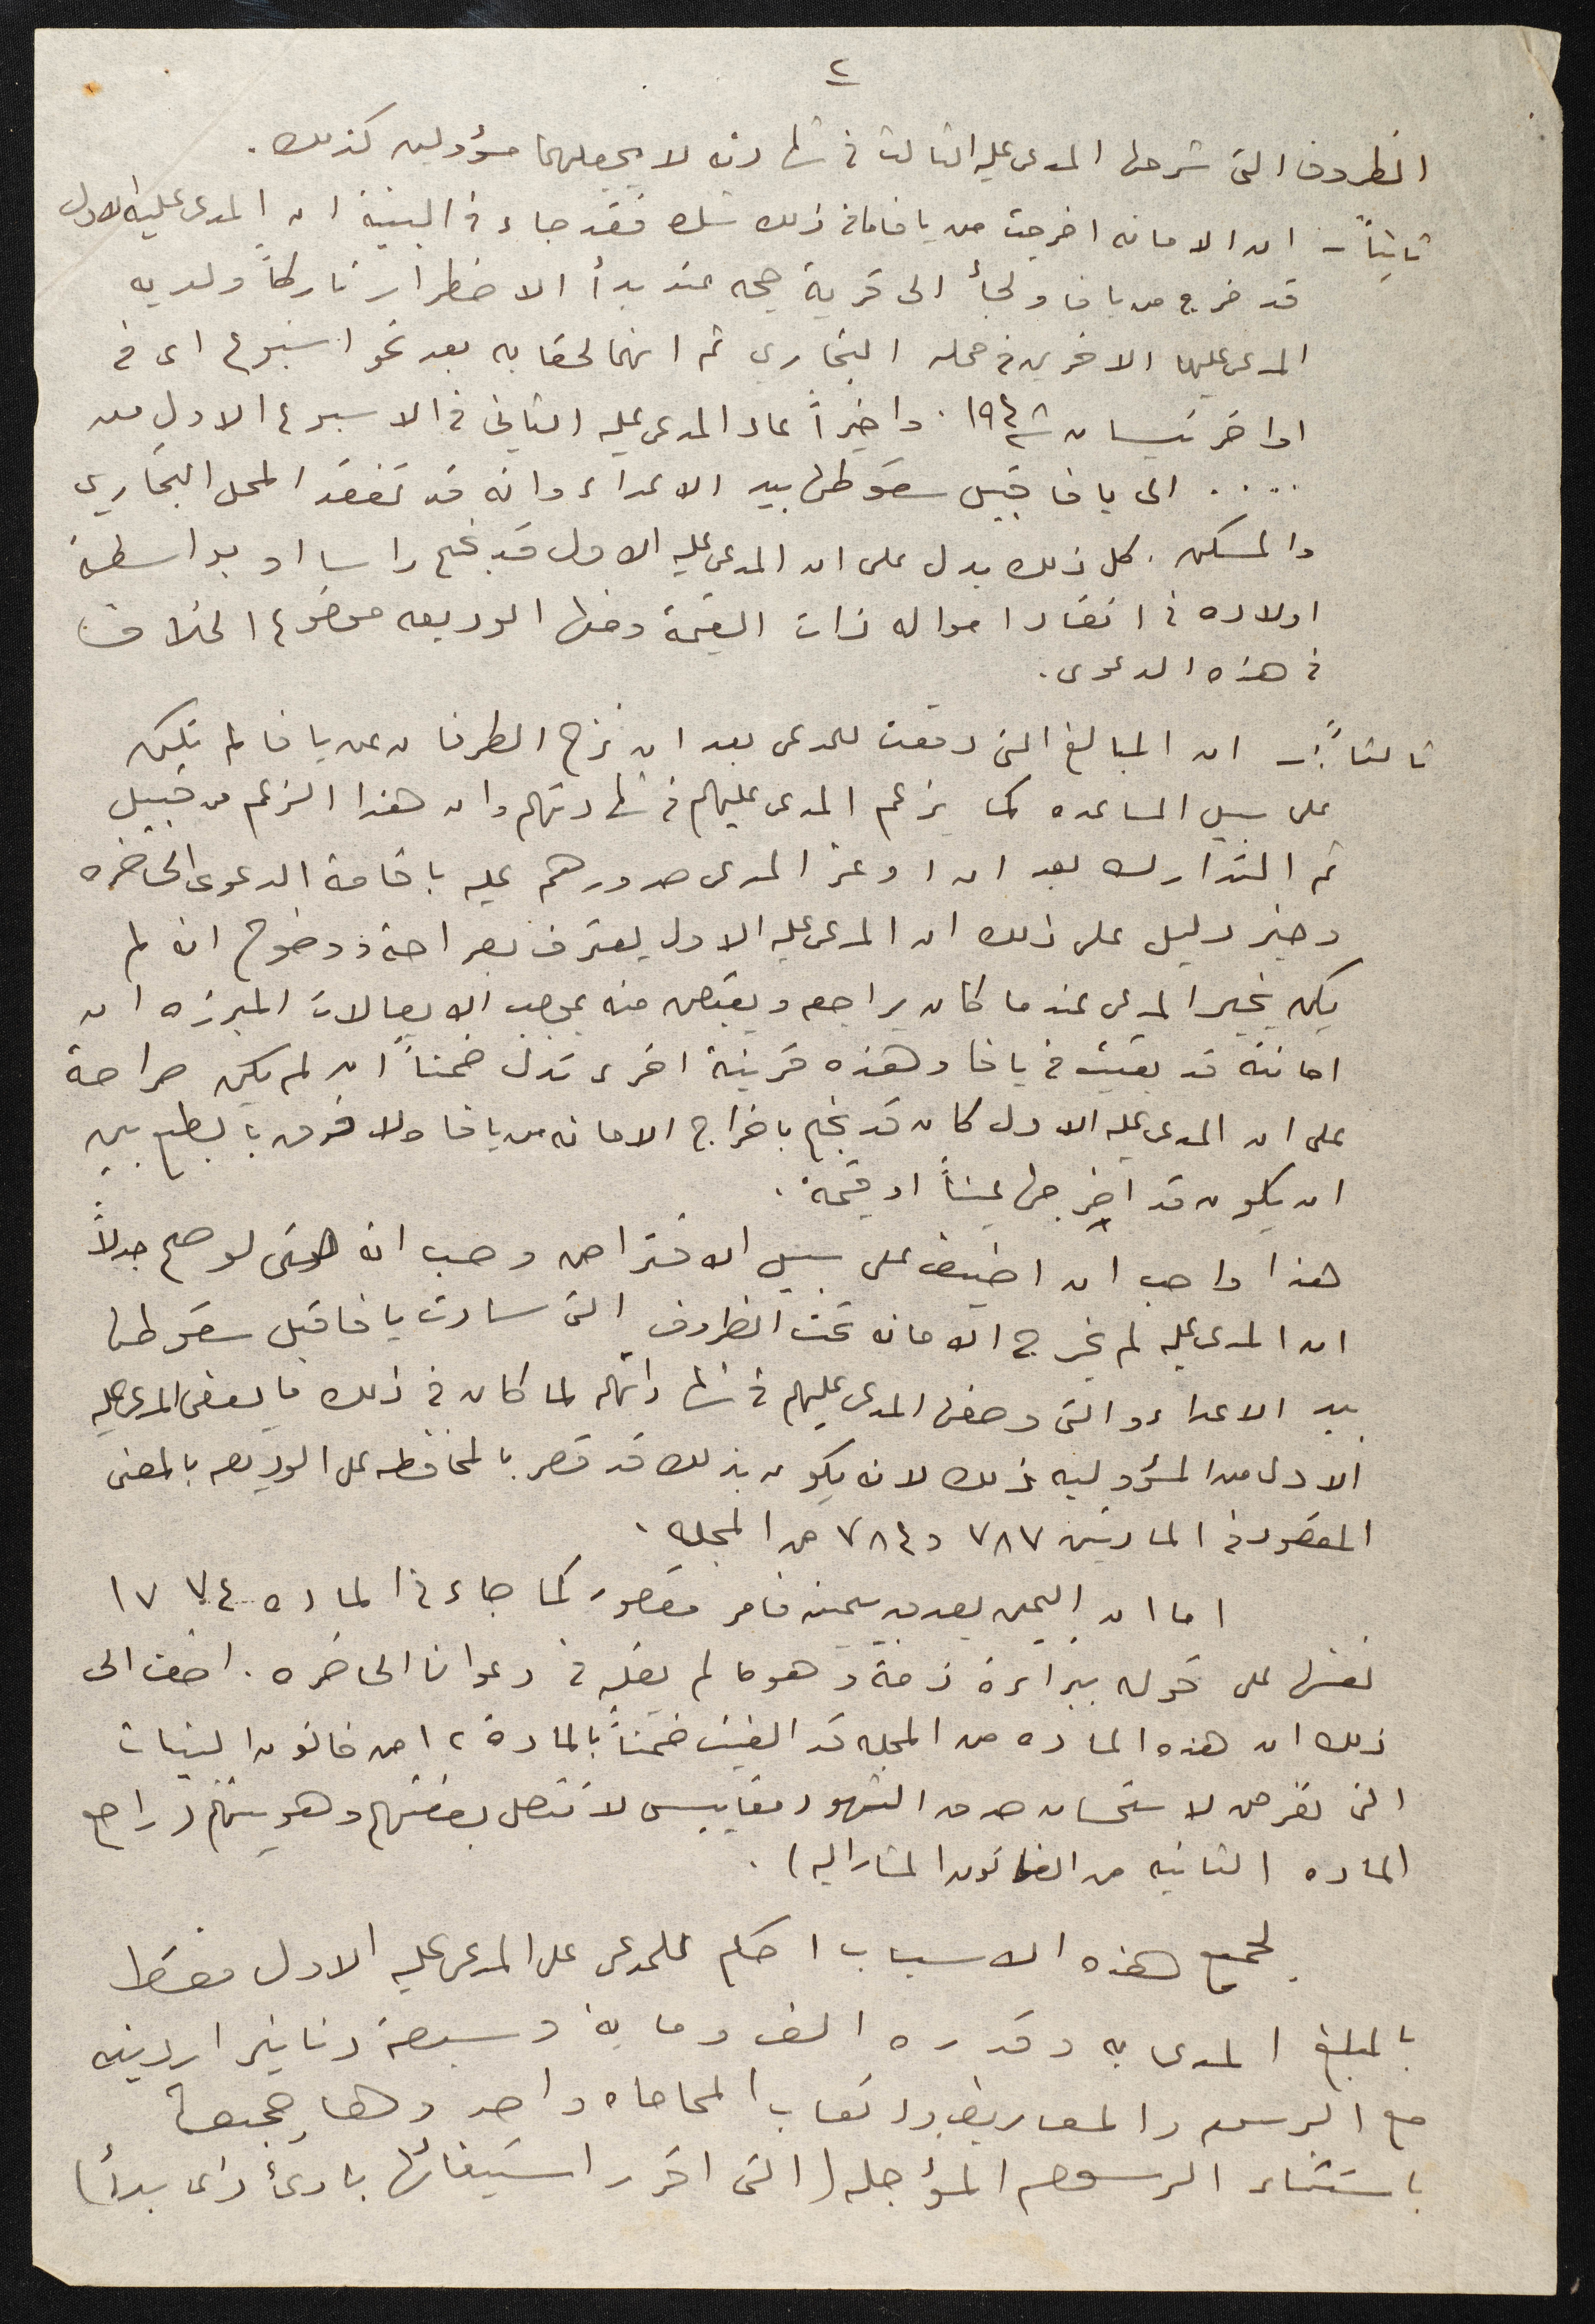 ٢
الظروف التي شرحها المدعى عليه الثالث في شهادته لا يجعلهما مسؤولين كذلك.
ثانياً - ان الامانه اخرجت من يافا ما في ذلك شك فقد جاء في البينة ان المدعى عليه الاول
قد خرج من يافا ولجأ الى قرية عند بدأ الاضطرار تاركاً ولديه
المدعى عليهما الاخرين في محله التجاري ثم انهما لحقا به بعد نحو اسبوع اي في
اواخر نيسان سنة ١٩٤٨. واخيراً عاد المدعى عليه الثاني في الاسبوع الاول من
.... الى يافا قبيل سقوطها بيد الاعداء وانه قد تفقد المحل التجاري
والمسكن. كل ذلك يدل على ان المدعى عليه الاول قد نجح راسا او بواسطة
اولاده في انقاذ امواله ذات القيمة ومنها الوديعه موضوع الخلاف
في هذه الدعوى.
ثالثاً :- ان المبالغ التي دفعت للمدعى بعد ان نزح الطرفان عن يافا لم تكن
على سبيل المساعده كما يزعم المدعى عليهم في شهادتهم وان هذا الزعم من قبيل
ثم التدارك بعد ان اوغر المدعى صدورهم عليه باقامة الدعوى الحاضره
وخير دليل على ذلك ان المدعى عليه الاول يعترف بصراحة ووضوح انه لم
يكن يخبر المدعى عندما كان يراجعه ويقبض منه بموجب الايصالات المبرزه ان
امانته قد بقيت في يافا وهذه قرينة اخرى تدل ضمناً ان لم يكن صراحة
على ان المدعى عليه الاول كان قد نجح باخراج الامانه من يافا ولا فرق بالطبع بين
ان يكون قد اخرجها عيناً او قيمة.
هذا واحب ان اضيف على سبيل الافتراض وحسب انه حتى لو صح جدلاً
ان المدعى عليه لم يخرج الامانه تحت الظروف التي سادت يافا قبل سقوطها
بيد الاعداء والتي وصفها المدعى عليهم في شهاداتهم لما كان في ذلك ما يعفى المدعى عليه
الاول من المسؤوليه ذلك لانه يكون بذلك قد قصر بالمحافظه على الوديعه بالمعنى
المقصود في المادتين ٧٨٧ و ٧٨٤ من المجله.
اما ان اليمين يصدق بيمينه فامر مقصور كما جاء في الماده ١٧٧٤
نفسها على قوله ببراءة ذمة وهو ما لم يقله في دعوانا الحاضره. اضف الى
ذلك ان هذه الماده من المجله قد الغيت ضمناً بالمادة ٢ من قانون البينات
التي تفرض لاستحسان صدق الشهود مقاييس لا تتصل بصفتهم وهويتهم (راجع
الماده الثانيه من القانون المشار اليه).
لجميع هذه الاسباب احكم للمدعى على المدعى عليه الاول فقط
بالمبلغ المدعى به وقدره الف وماية وسبعة دنانير اردنيه
مع الرسوم والمصاريف واتعاب المحاماه واحد وها جميعها
باستثناء الرسوم المؤجله (التي اقرر استيفائها بادئ ذي بدأ)